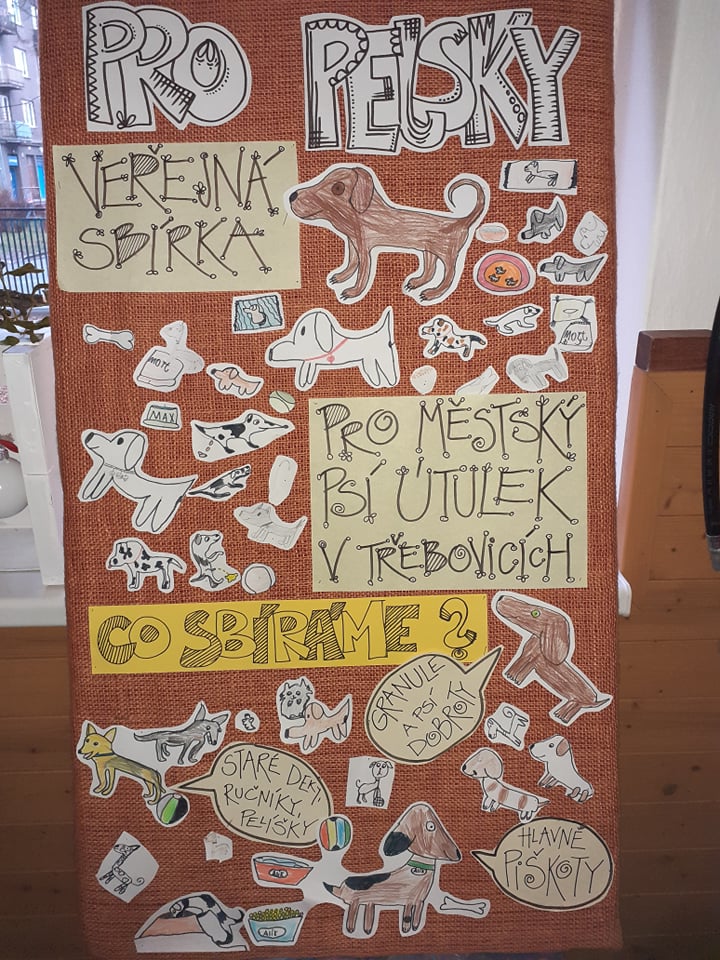 PRO PEJSKY
VEŘEJNÁ
SBÍRKA
MAX
PRO MĚSTSKÝ
PSÍ ÚTULEK
V TŘEBOVICÍCH
CO SBÍRÁME?
GRANULE
A PSÍ
DOBROTY
STARÉ DEKY,
RUČNÍKY,
PELÍŠKY
HLAVNĚ
PIŠKOTY